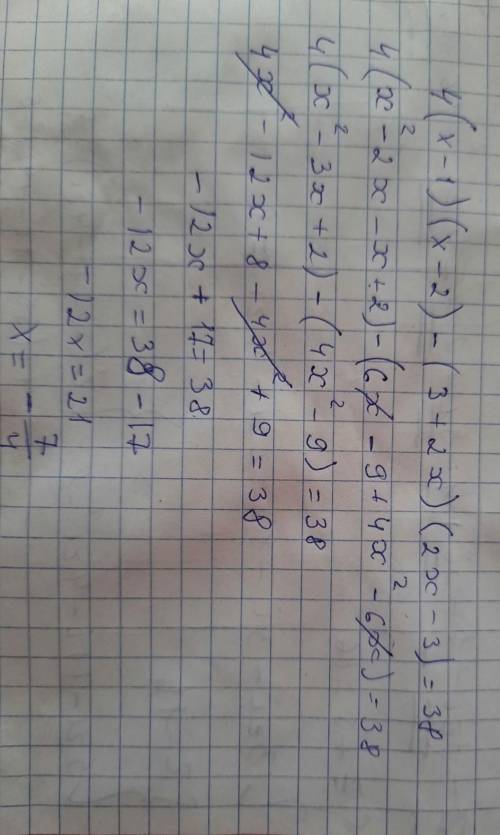 4(x-1)(x-2)-(3+2x)(2x-3)=38
4(x²-2x-x+2)-(6x-9+4x²-6x)=38
4(x²-3x+2)-(4x²-9)=38
4x²-12x+8-4x²+9=38
-12x+17=38
-12x=38-17
-12x=21
x=-7/4